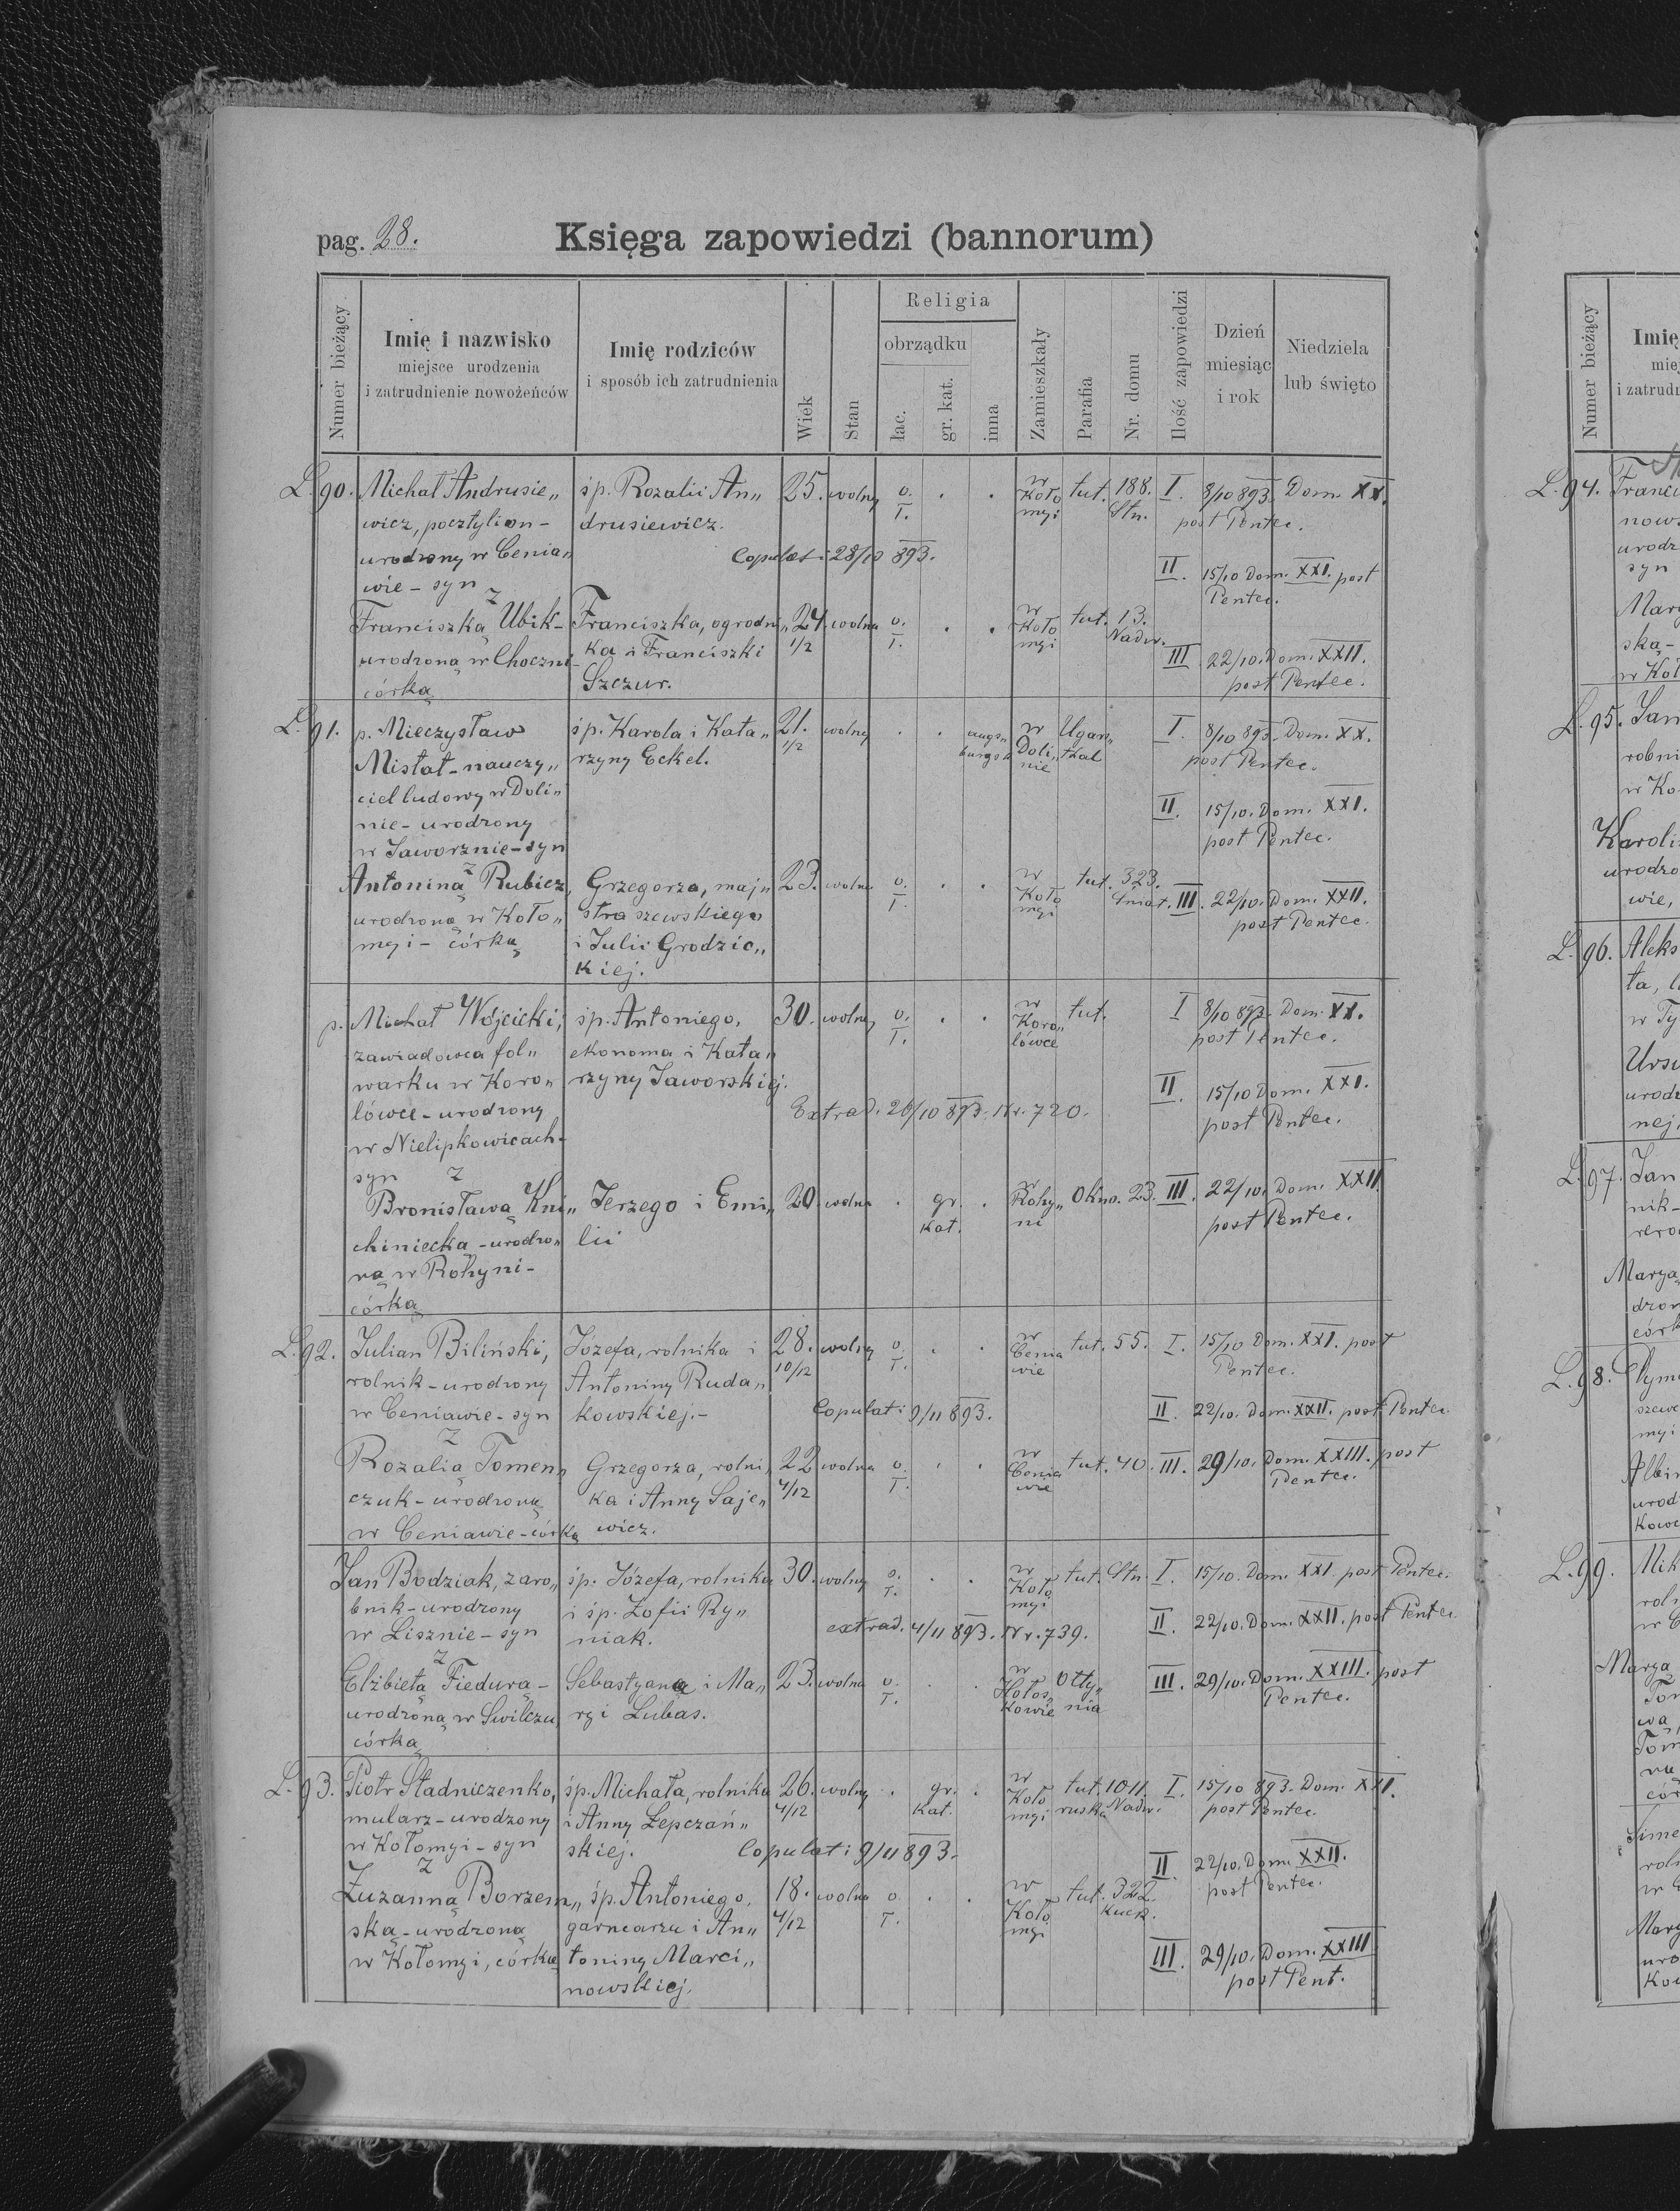 pag. 28. Księga zapowiedzi (bannorum)
Numer bieżący
Imię i nazwisko
miejsce urodzenia
i zatrudnienie nowożeńców
Imię rodziców
i sposób ich zatrudnienia
Wiek
Stan
Religia
obrządku
łac.
gr. kat.
inna
Zamieszkały
Parafia
Nr. domu
Ilość zapowiedzi
Dzień
miesiąc
i rok
Niedziela
lub święto
L. 90. Michał Andrusie„ śp. Rozalii An„ 25. wolny o. . . w Koło tut. 188. I. 8/10 893. Dom. XX.
wicz, pocztylion - drusiewicz. T. myi Stn. post Pentec.
urodzony w Cenia„ Copulati 28/10 893.
wie - syn II. 15/10 Dom. XXI. post
z Pentec.
Franciszką Ubik- Franciszka, ogrodni„ 24. wolna o. . . w Koło tut. 13.
urodzoną w Choczni- ka i Franciszki 1/2 T. myi Nadw. III 22/10. Dom. XXII.
córką Szczur. post Pentec.
L. 91. p. Mieczysław śp. Karola i Kata„ 21. wolny . . augs„ w Ugar„ I. 8/10 893. Dom. XX.
Mistat - nauczy„ rzyny Eckel. 1/2 burgsk. Doli„ tkal post Pentec.
nie
ciel ludowy w Doli„ II. 15/10. Dom. XXI.
nie - urodzony post Pentec.
w Jaworznie - syn
z
Antoniną Rubicz, Grzegorza, maj„ 23. wolna o. . . w Koło tut. 323.
urodzoną w Koło„ stra szewskiego T. myi Śniat. III. 22/10. Dom. XXII.
myi - córką i Julii Grodzic„ post Pentec.
kiej.
p. Michał Wójcicki, śp. Antoniego, 30. wolny o. . . w Koro„ tut. I 8/10 893. Dom. XX.
zawiadowca fol„ ekonoma i Kata„ T. lówce post Pentec.
warku w Koro„ rzyny Jaworskiej. II. 15/10 Dom. XXI.
lówce - urodzony Extrad. 26/10 893. Nr. 720. post Pentec.
w Nielipkowicach-
syn z
Bronisławą Kni„ Jerzego i Emi„ 20. wolna . gr. . w Rohy„ Okno. 23. III. 22/10. Dom. XXII.
chiniecką - urodzo„ lii kat. ni post Pentec.
ną w Rohyni -
córką
L. 92. Julian Biliński, Józefa, rolnika i 28. wolny o. . . w Cenia tut. 55. I. 15/10 Dom. XXI. post
rolnik - urodzony Antoniny Ruda„ 10/12 T. wie Pentec.
w Ceniawie - syn kowskiej. - Copulati 9/11 893. II. 22/10. Dom. XXII. post Pentec.
z
Rozalią Tomen„ Grzegorza, rolni„ 22 wolna o. . . w Cenia tut. 40. III. 29/10. Dom. XXIII. post
czuk - urodzoną ka i Anny Saje„ 4/12 T. wie Pentec.
w Ceniawie - córką wicz.
Jan Bodziak, zaro„ śp. Józefa, rolnika 30. wolny o. . . w Koło tut. Stn. I. 15/10. Dom. XXI. post Pentec.
bnik - urodzony i śp. Zofii Ry„ T. myi
w Lisznie - syn niak. extrad. 4/11 893. Nr. 739. II. 22/10. Dom. XXII. post Pentec.
z
Elżbietą Fiedurą - Sebastyana i Ma„ 23. wolna o. . . w Hołos„ Otty„ III. 29/10. Dom. XXIII. post
urodzoną w Swilczu, ryi Lubas. T. kowie nia Pentec.
córką
L. 93. Piotr Stadniczenko, śp. Michała, rolnika 26. wolny . gr. . w Koło tut. 1011. I. 15/10 893. Dom. XXI.
mularz - urodzony i Anny Łepczań„ 4/12 kat. myi ruska Nadw. post Pentec.
w Kołomyi - syn skiej. Copulati 9/11 893.
z II 22/10. Dom. XXII.
Zuzanną Borzem„ śp. Antoniego, 18. wolna o. . . w Koło tut. 322. post Pentec.
ską - urodzoną garncarza i An„ 4/12 T. myi Kuck.
w Kołomyi, córką toniny Marci„ III. 29/10. Dom. XXIII
nowskiej. post Pent.
Numer bieżący
L. 94.
L. 95. Jan
w Ko
L. 96. Aleks
L. 97. Jan
nik-
L. 98.
L. 99. Mik